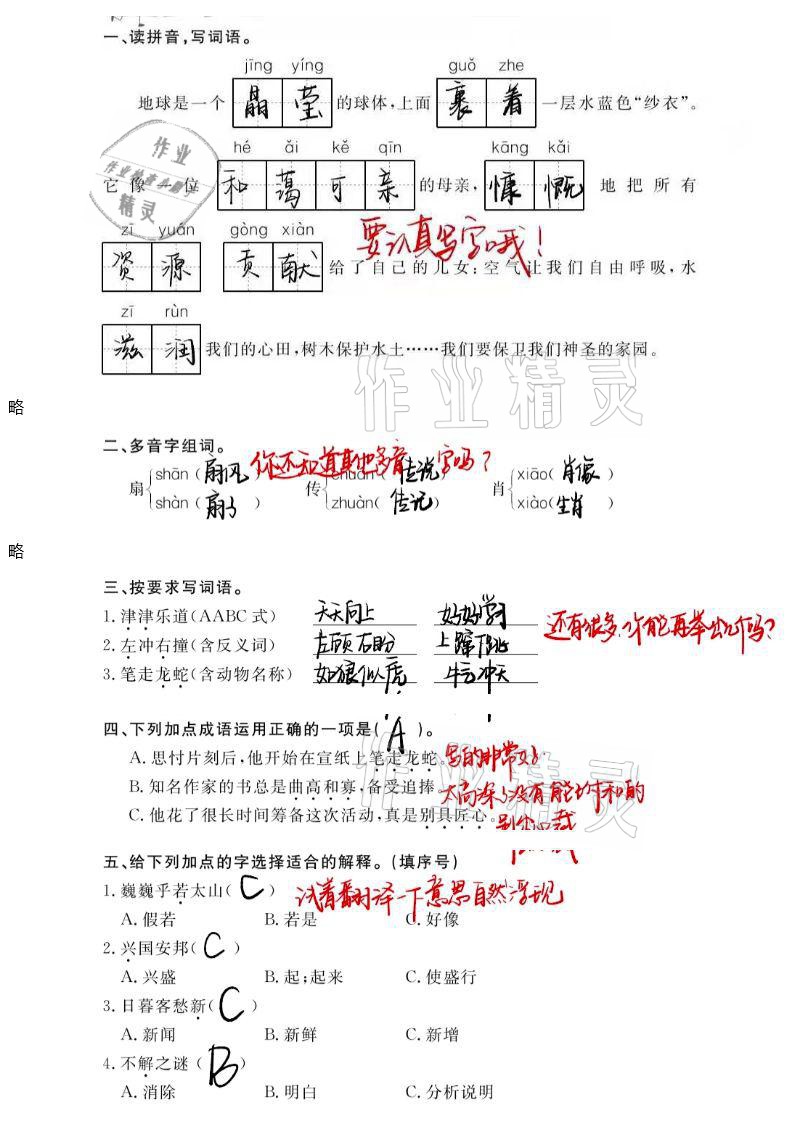 一、读拼音，写词语。
jīng yíng guǒ zhe
地球是一个晶莹的球体，上面裹着一层水蓝色“纱衣”。
hé ǎi kě qīn kāng kǎi
它像一位和蔼可亲的母亲，慷慨地把所有
zī yuán gòng xiàn
资源 贡献给了自己的儿女：空气让我们自由呼吸，水
要认真写字哦！
zī rùn
滋润我们的心田，树木保护水土……我们要保卫我们神圣的家园。
略
二、多音字组词。
你还知道其他多音字吗？
扇 shān（扇风） 传 chuán（传说） 肖 xiāo（肖像）
shàn（扇子） zhuàn（传记） xiào（生肖）
略
三、按要求写词语。
1. 津津乐道（AABC 式） 天天向上 好好学习
还有很多，你能再举出几个吗？
2. 左冲右撞（含反义词） 左顾右盼 上蹿下跳
3. 笔走龙蛇（含动物名称） 如狼似虎 牛气冲天
四、下列加点成语运用正确的一项是（A）。
A. 思忖片刻后，他开始在宣纸上笔走龙蛇。写的非常好
B. 知名作家的书总是曲高和寡，备受追捧。太高深了没有能
C. 他花了很长时间筹备这次活动，真是别具匠心。别出心裁
五、给下列加点的字选择适合的解释。（填序号）
1. 巍巍乎若太山（C） 试着翻译一下意思自然浮现
A. 假若 B. 若是 C. 好像
2. 兴国安邦（C）
A. 兴盛 B. 起；起来 C. 使盛行
3. 日暮客愁新（C）
A. 新闻 B. 新鲜 C. 新增
4. 不解之谜（B）
A. 消除 B. 明白 C. 分析说明
作业
作业检查小助手
精灵
作业精灵
作业精灵